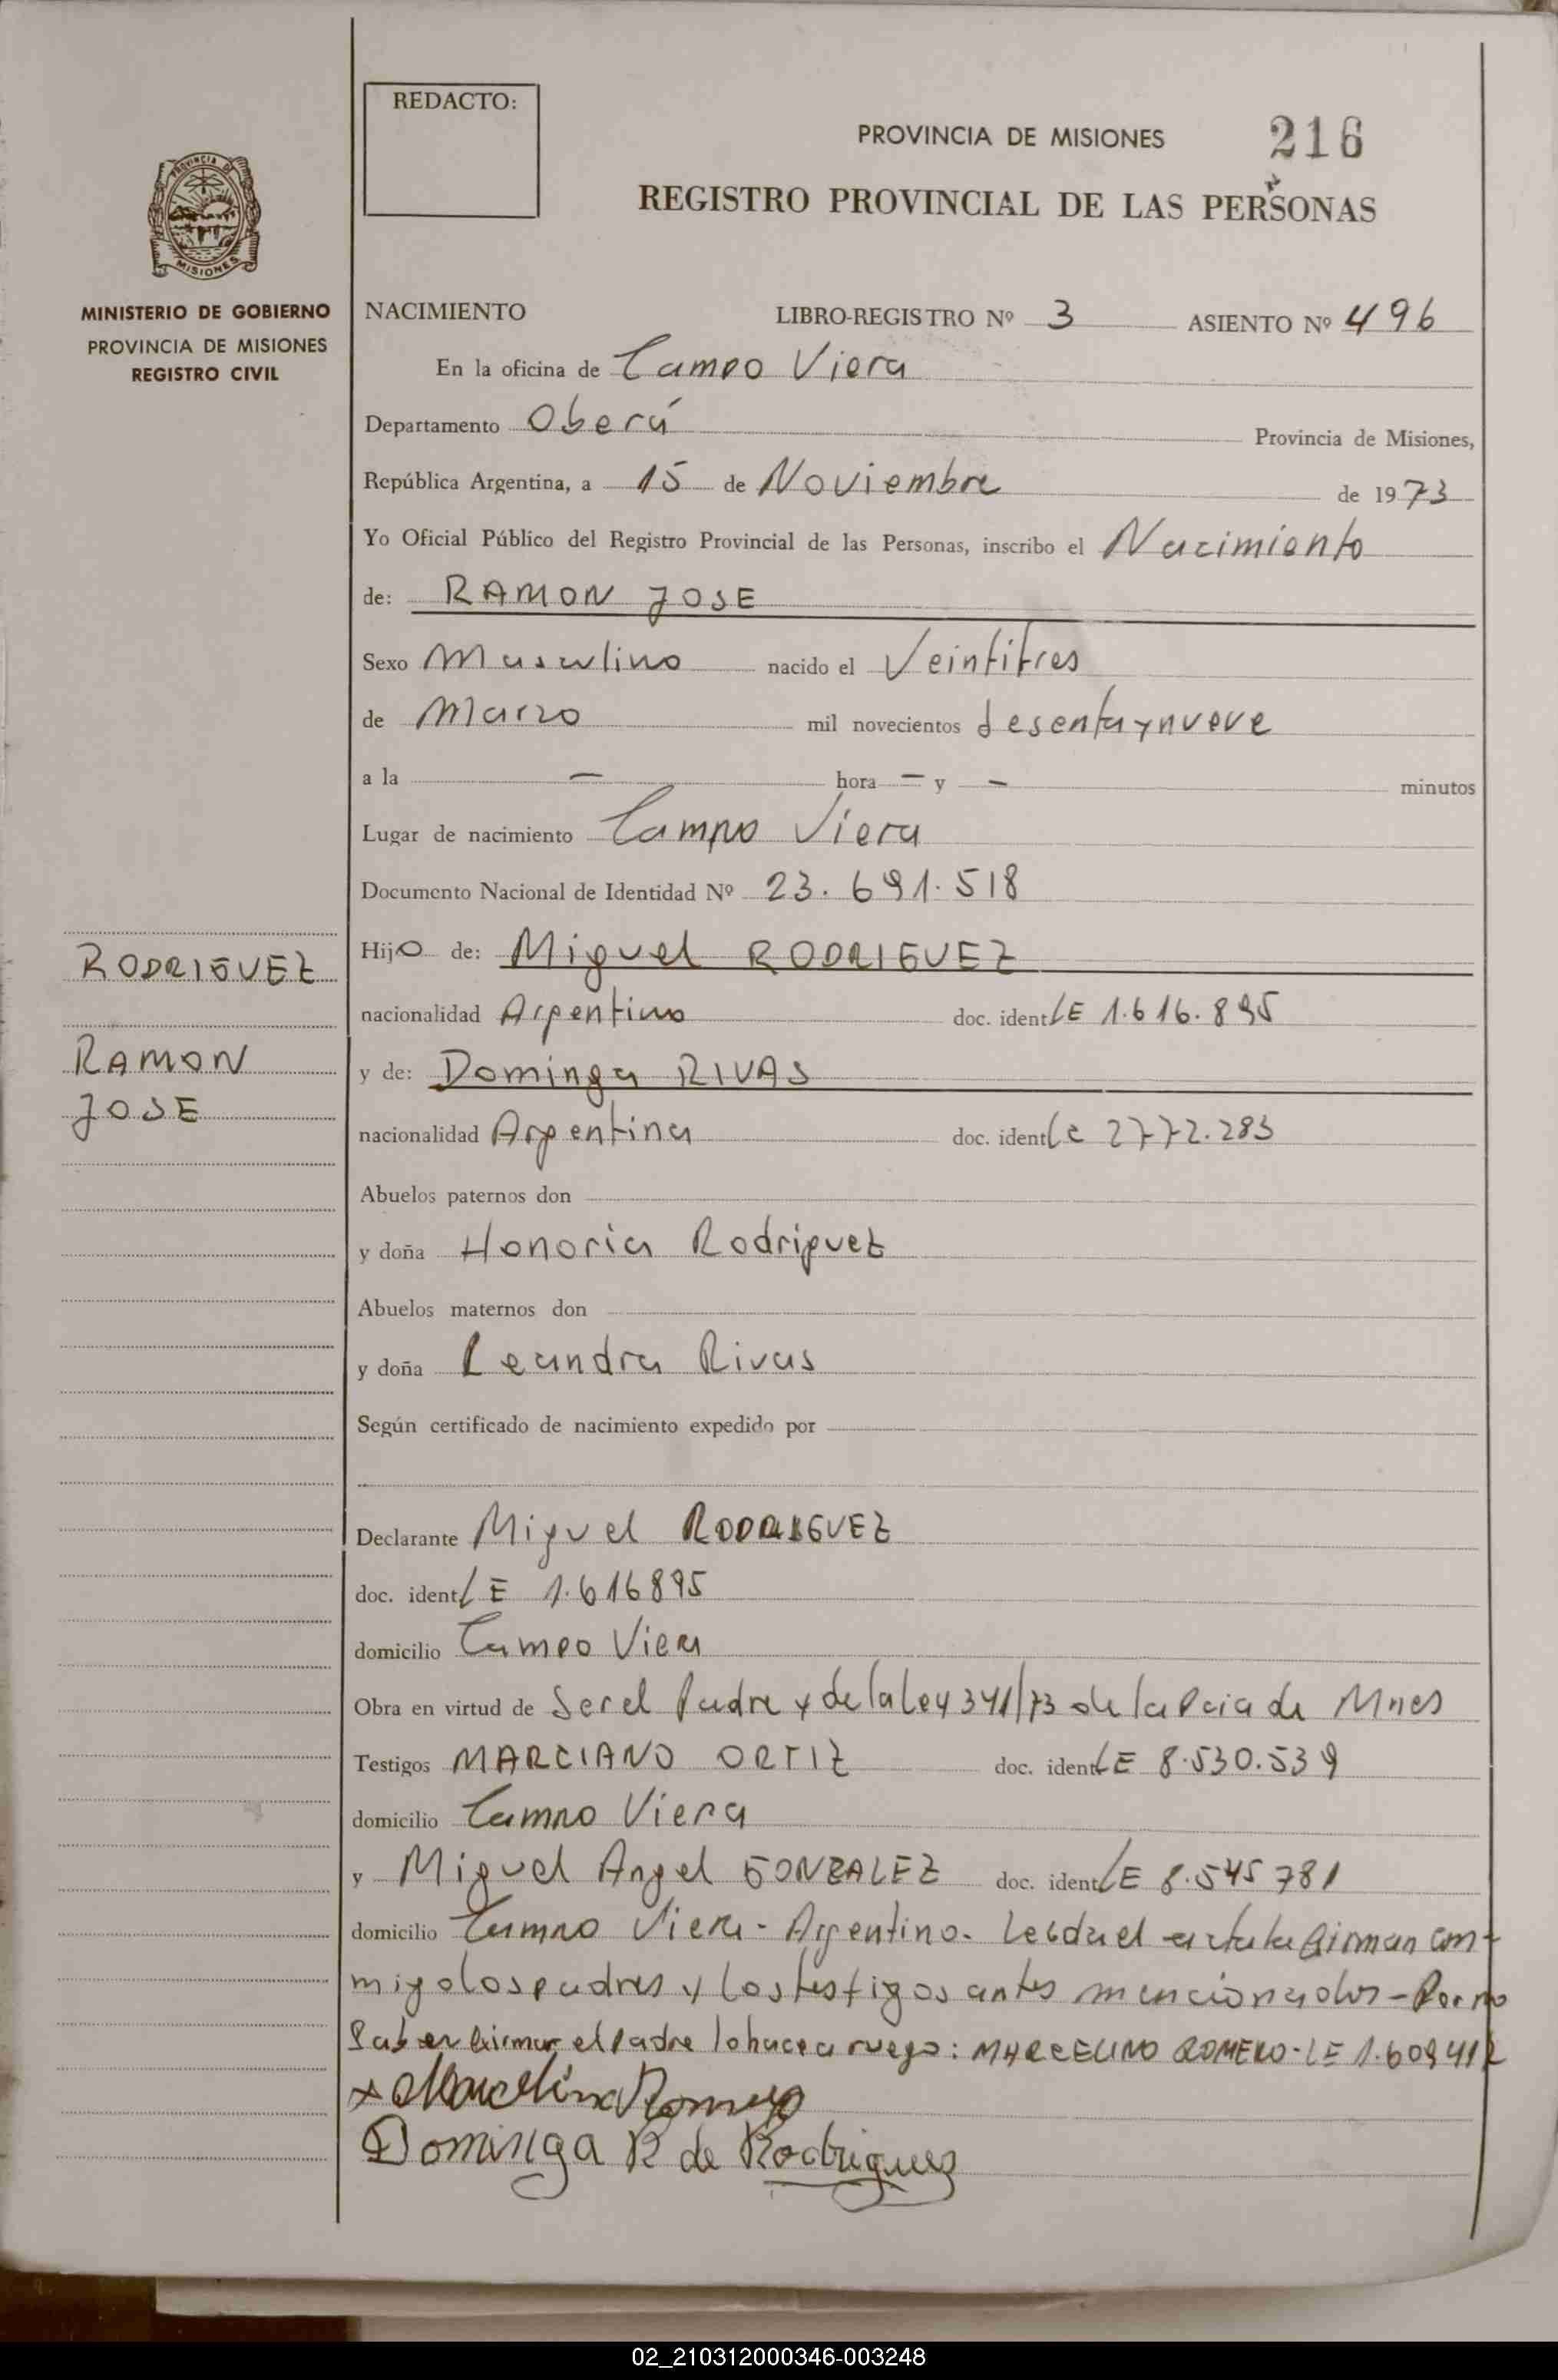 REDACTO:
PROVINCIA DE MISIONES 216
REGISTRO PROVINCIAL DE LAS PERSONAS
PROVINCIA DE
MISIONES
MINISTERIO DE GOBIERNO
PROVINCIA DE MISIONES
REGISTRO CIVIL
NACIMIENTO LIBRO-REGISTRO Nº 3 ASIENTO Nº 496
En la oficina de Campo Viera
Departamento Oberá Provincia de Misiones,
República Argentina, a 15 de Noviembre de 1973
Yo Oficial Público del Registro Provincial de las Personas, inscribo el Nacimiento
de: RAMON JOSE
Sexo Masculino nacido el Veintitres
de Marzo mil novecientos sesenta y nueve
a la — hora — y — minutos
Lugar de nacimiento Campo Viera
Documento Nacional de Identidad Nº 23.691.518
RODRIGUEZ
RAMON
JOSE
Hijo de: Miguel RODRIGUEZ
nacionalidad Argentino doc. ident LE 1.616.895
y de: Dominga RIVAS
nacionalidad Argentina doc. ident LC 2772.283
Abuelos paternos don
y doña Honoria Rodriguez
Abuelos maternos don
y doña Leandra Rivas
Según certificado de nacimiento expedido por
Declarante Miguel RODRIGUEZ
doc. ident LE 1.616895
domicilio Campo Viera
Obra en virtud de Ser el Padre y de la Ley 341/73 de la Pcia de Mnes
Testigos MARCIANO ORTIZ doc. ident LE 8.530.539
domicilio Campo Viera
y Miguel Angel GONZALEZ doc. ident LE 8.545781
domicilio Campo Viera - Argentino. Leida el acta la firman con-
migo los padres y los testigos antes mencionados - Por no
Saber firmar el Padre lo hace a ruego: MARCELINO ROMERO - LE 1.609412
x Marcelino Romero
Dominga R de Rodriguez
02_210312000346-003248